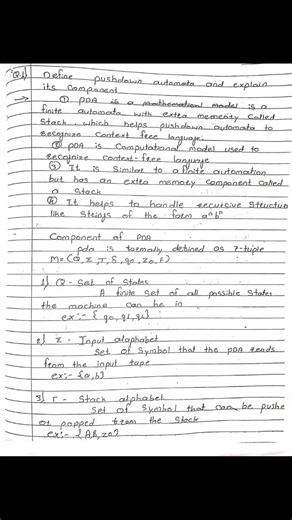 Q.1) Define pushdown automata and explain
its component
→ ① PDA is a mathematical model is a
finite automata with extra memory called
Stack which helps pushdown automata to
recognize context free language.
② PDA is Computational model used to
recognize context-free language
③ It is Similar to a finite automation
but has an extra memory component called
a Stack
④ It helps to handle recursive Structur
like Strings of the form aⁿbⁿ
Component of PDA
pda is formally defined as 7-tuple
M=(Q, Σ, Γ, δ, q0, z0, F)
1) Q - Set of States
A finite Set of all possible States
the machine can be in
ex:- {q0, q1, q2}
2) Σ - Input alphabet
Set of Symbol that the PDA reads
from the input tape
ex:- {a,b}
3) Γ - Stack alphabet
Set of Symbol that can be pushe
or popped from the Stack
ex:- {A,B,z0}